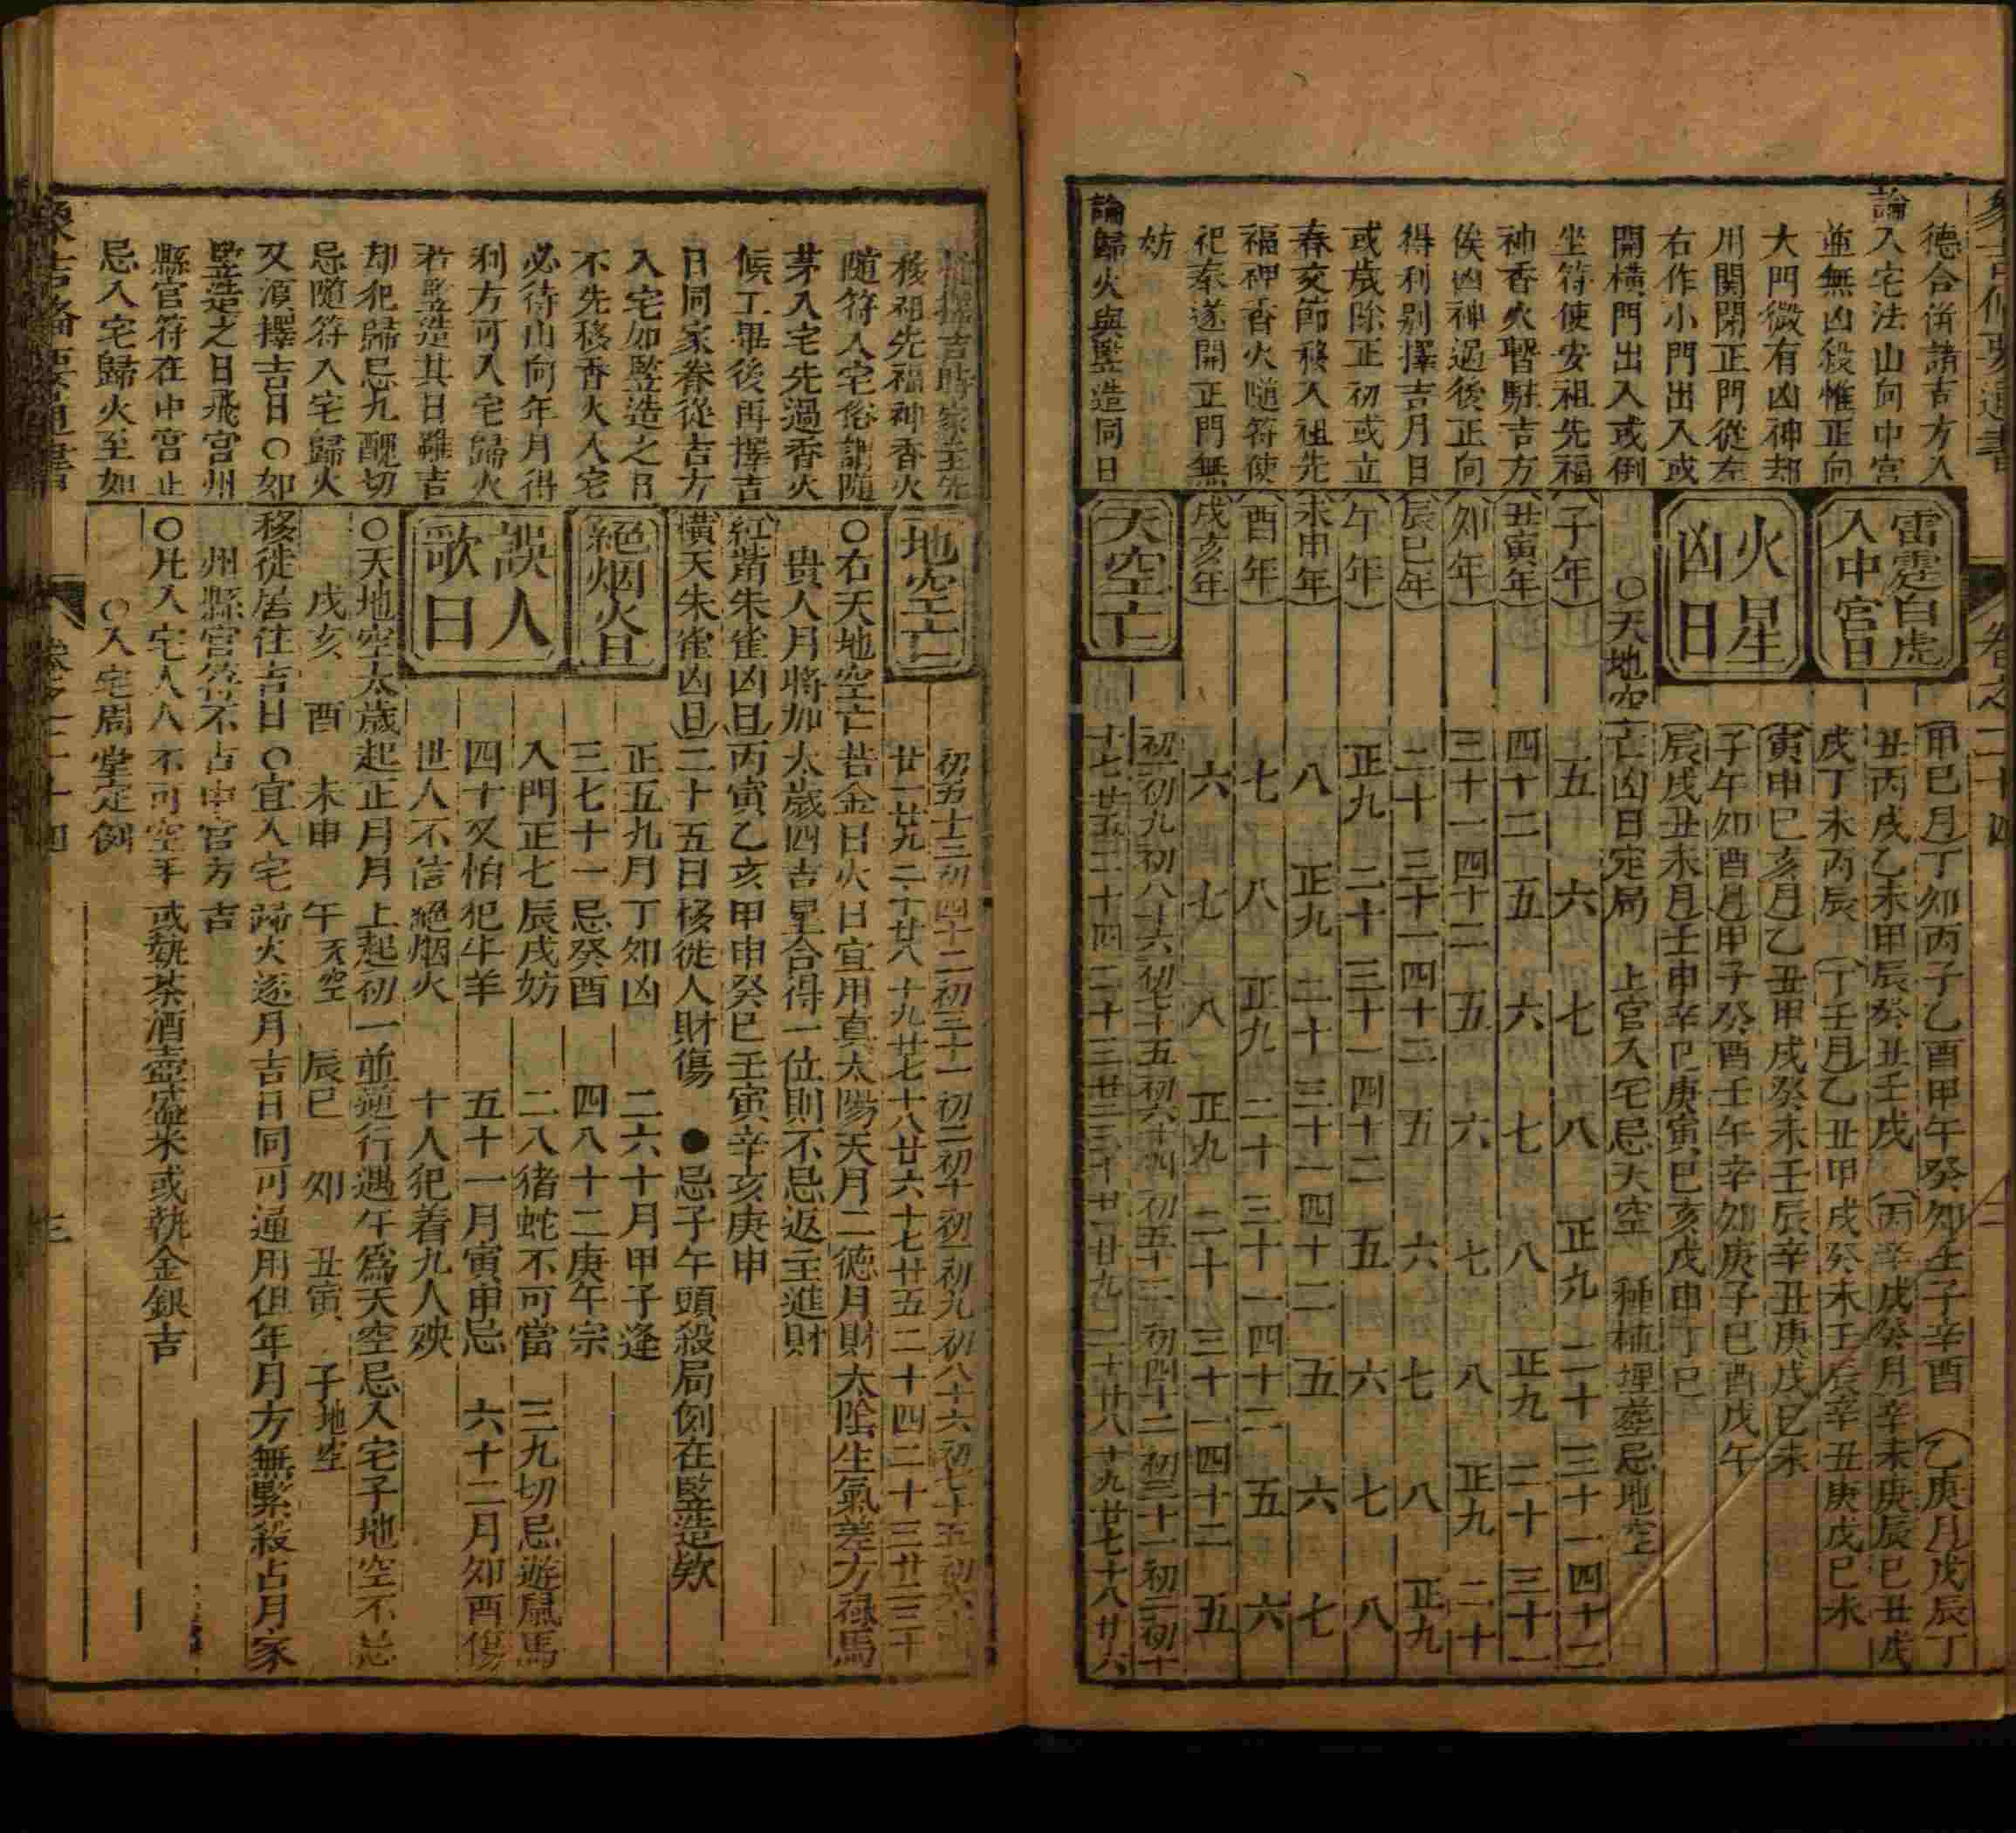 德合併諸吉方入
論入宅法山向中宮
並無凶殺惟正向
大門微有凶神却
用關閉正門從左
右作小門出入或
開橫門出入或倒
坐符使安祖先福
神香火暫駐吉方
俟凶神過後正向
得利別擇吉月日
或歲除正初或立
春交節移入祖先
福神香火隨符使
祀奉遂開正門無
妨
論歸火與竪造同日
雷霆白虎入中宮日
甲巳月丁卯丙子乙酉甲午癸卯壬子辛酉 乙庚月戊辰丁
丑丙戌乙未甲辰癸丑壬戌 丙辛戊癸月辛未庚辰巳丑戊
戌丁未丙辰 丁壬月乙丑甲戌癸未壬辰辛丑庚戌巳未
火星凶日
寅申巳亥月乙丑甲戌癸未壬辰辛丑庚戌巳未
子午卯酉月甲子癸酉壬午辛卯庚子巳酉戊午
辰戌丑未月壬申辛巳庚寅巳亥戊申丁巳
○天地空亡凶日定局 上官入宅忌天空 種植埋葬忌地空
子年 五 六 七 八 正九 二十 三十一 四十二
丑寅年 四十二 五 六 七 八 正九 二十 三十一
卯年 三十一 四十二 五 六 七 八 正九 二十
辰巳年 二十 三十一 四十二 五 六 七 八 正九
午年 正九 二十 三十一 四十二 五 六 七 八
未申年 八 正九 二十 三十一 四十二 五 六 七
酉年 七 八 正九 二十 三十一 四十二 五 六
戌亥年 六 七 八 正九 二十 三十一 四十二 五
天空亡
初一初九 初八十六 初七十五 初六十四 初五十三 初四十二 初三十一 初二初十
十七廿五 二十四 二十三 廿二三十 廿一廿九 二十廿八 十九廿七 十八廿六
吉時家主先
移祖先福神香火
隨符入宅俗謂隨
茅入宅先過香火
候工畢後再擇吉
日同家眷從吉方
入宅如竪造之日
不先移香火入宅
必待山向年月得
利方可入宅歸火
若竪造其日雖吉
却犯歸忌九醜切
忌隨符入宅歸火
又須擇吉日○如
竪造之日飛宮州
縣官符在中宮止
忌入宅歸火至如
地空亡
初五十三 初四十二 初三十一 初二初十 初一初九 初八十六 初七十五 初六十四
廿一廿九 二十廿八 十九廿七 十八廿六 十七廿五 二十四 二十三 廿二三十
○右天地空亡若金日火日宜用真太陽天月二德月財太陰生氣差方祿馬
貴人月將加太歲四吉星合得一位則不忌返主進財
紅觜朱雀凶日丙寅乙亥甲申癸巳壬寅辛亥庚申
橫天朱雀凶日二十五日移徙人財傷 ●忌子午頭殺局例在竪造欵
絕烟火日
正五九月丁卯凶 二六十月甲子逢
三七十一忌癸酉 四八十二庚午宗
誤人歌曰
入門正七辰戌妨 二八猪蛇不可當 三九切忌遊鼠馬
四十又怕犯牛羊 五十一月寅申忌 六十二月卯酉傷
世人不信絕烟火 十人犯着九人殃
○天地空太歲起正月月上起初一並逆行遇午爲天空忌入宅子地空不忌
戌亥 酉 未申 午天空 辰巳 卯 丑寅 子地空
移徙居住吉日○宜入宅歸火逐月吉日同可通用但年月方無緊殺占月家
州縣官符不占中宮方吉
○凡入宅人人不可空手或執茶酒壺盞米或執金銀吉
○入宅周堂定例